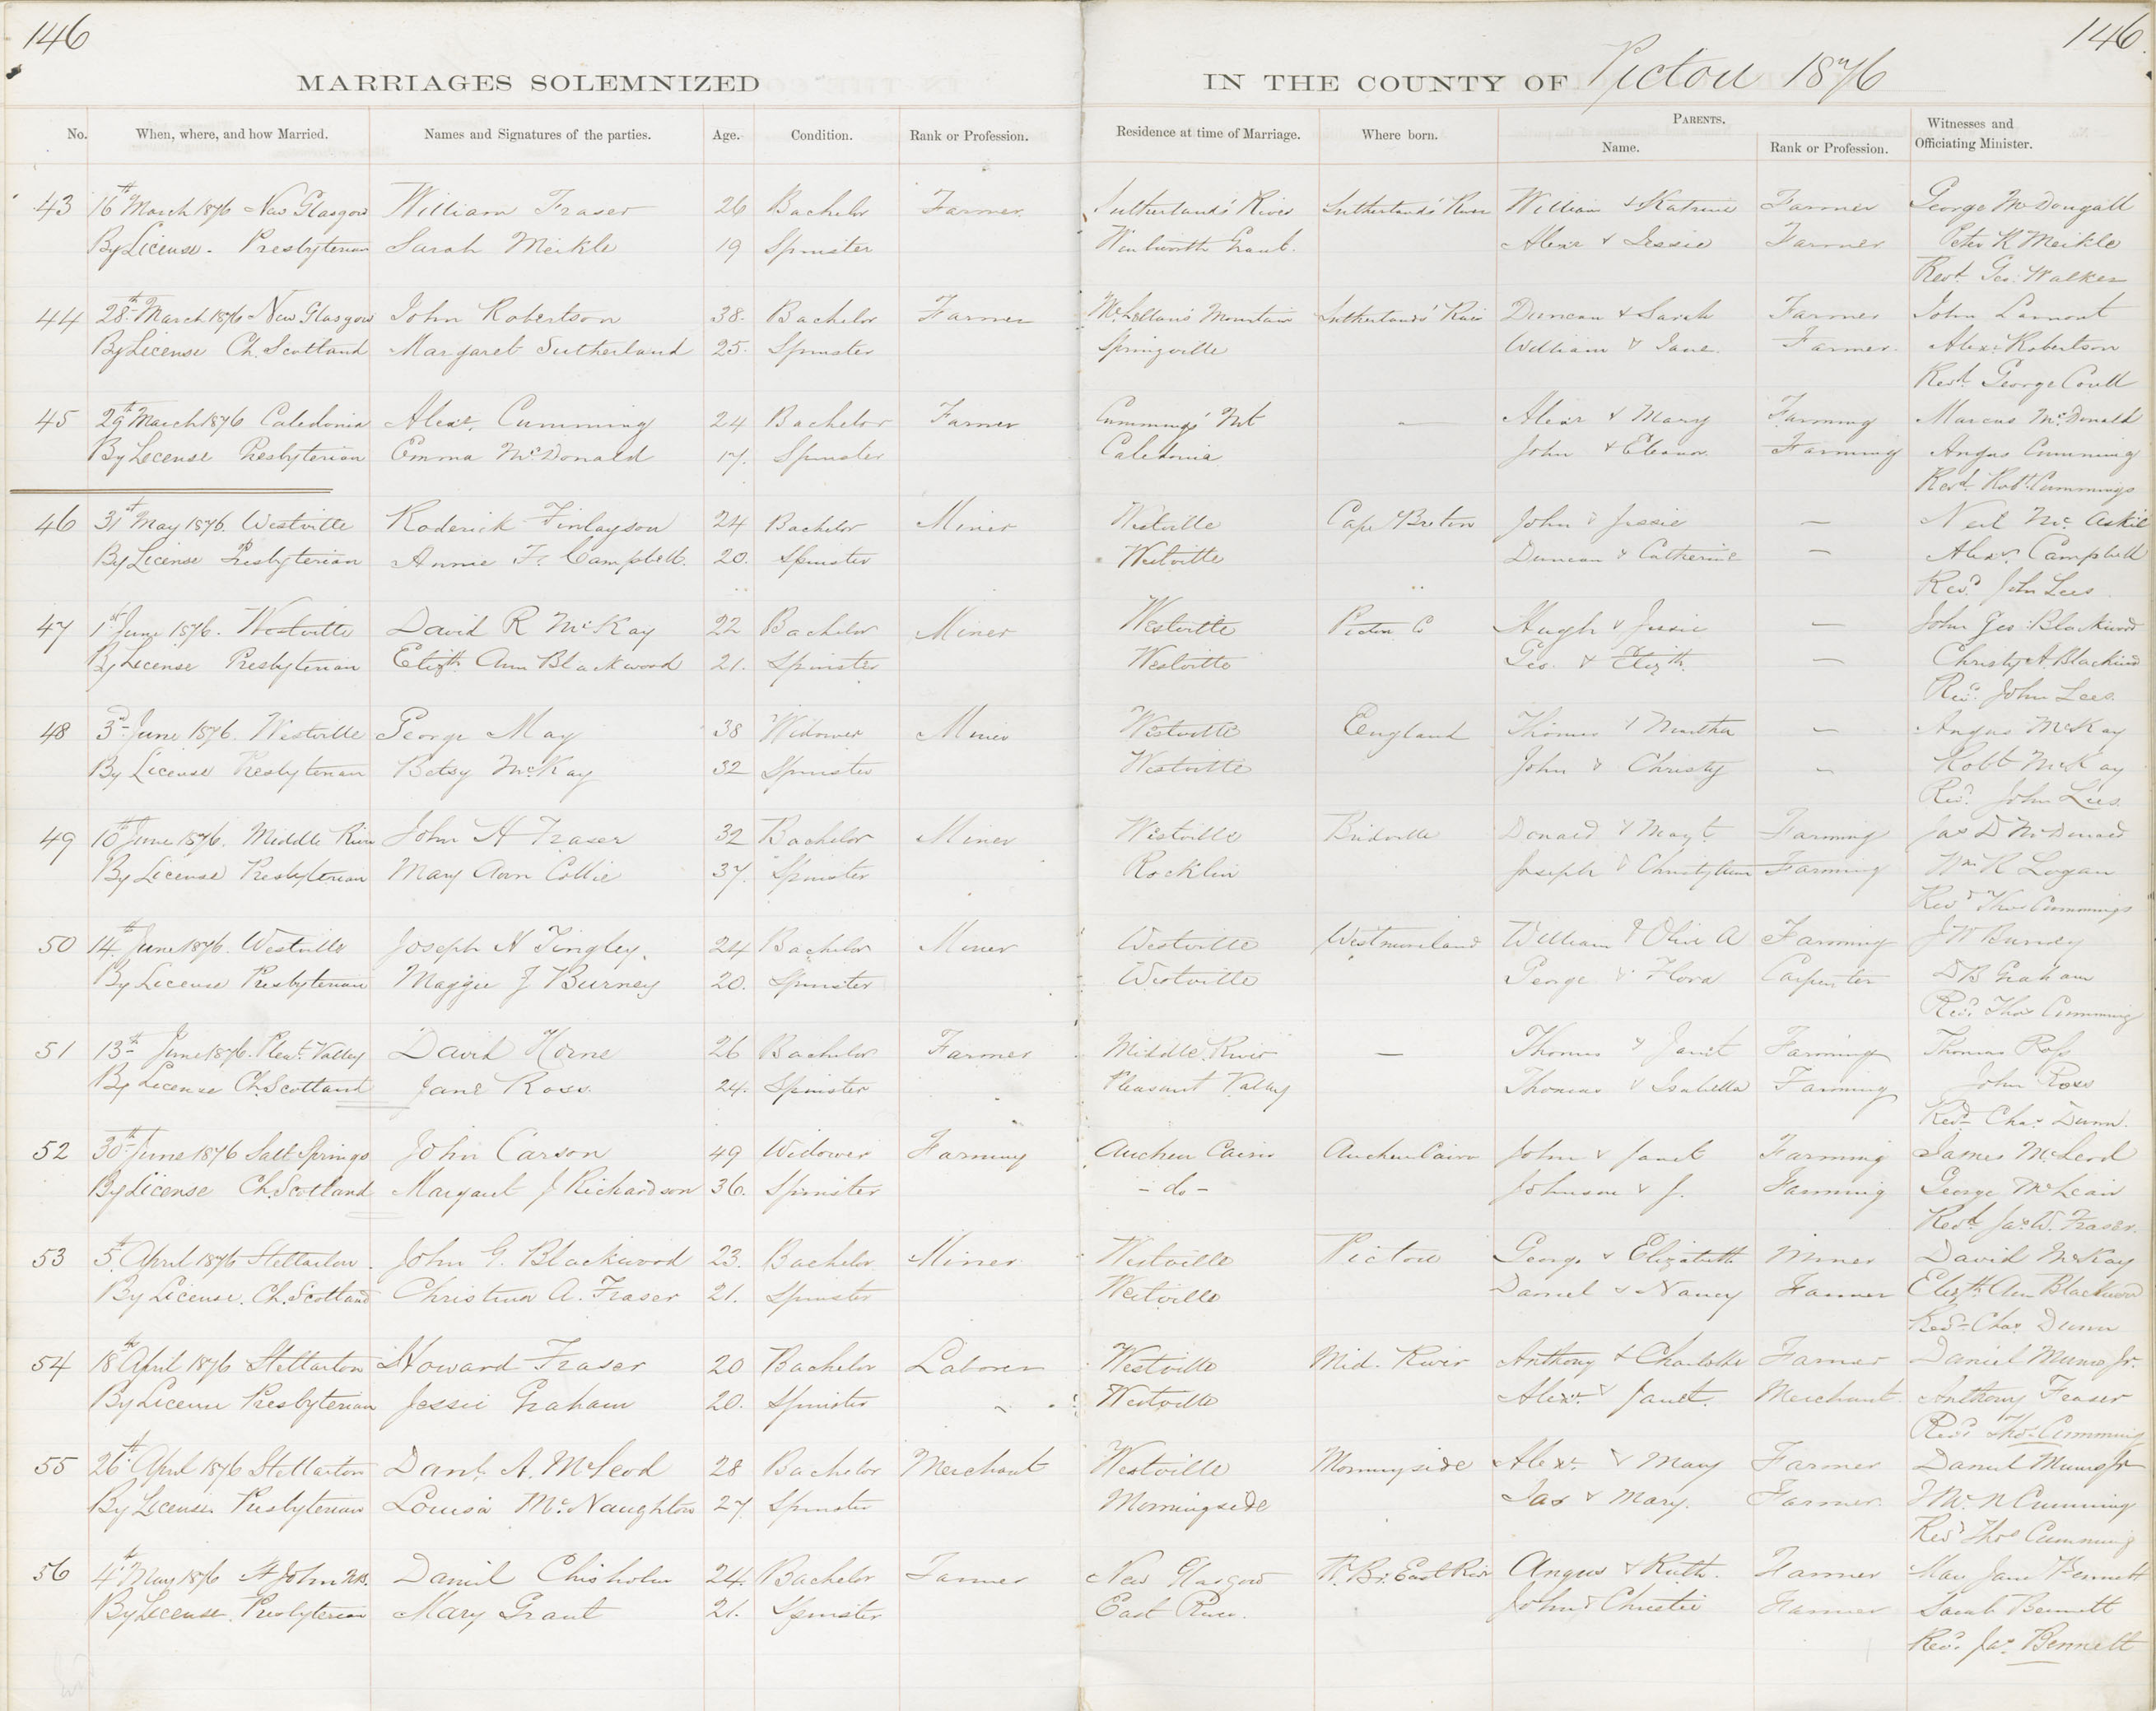 146
146.
MARRIAGES SOLEMNIZED IN THE COUNTY OF Pictou 1876
No. When, where, and how Married. Names and Signatures of the parties. Age. Condition. Rank or Profession. Residence at time of Marriage. Where born. PARENTS. Witnesses and
Name. Rank or Profession. Officiating Minister.
43 16th March 1876 New Glasgow William Fraser 26 Bachelor Farmer Sutherlands' River Sutherlands' River William & Katrine Farmer George McDougall
By License. Presbyterian Sarah Meikle 19 Spinster Grant. Alexr & Jessie Farmer Peter R Meikle
Revd. Geo. Walker
44 28th March 1876 New Glasgow John Robertson 38. Bachelor Farmer McLellan's Mountain Sutherlands' River Duncan & Sarah Farmer John Lamont
By License Ch. Scotland Margaret Sutherland 25. Spinster Springville William & Jane. Farmer. Alexr Robertson
Revd. George Coull
45 29th March 1876 Caledonia Alexr. Cumming 24 Bachelor Farmer Cummings' Mt — Alexr & Mary Farming Marcus McDonald
By License Presbyterian Emma McDonald 17. Spinster Caledonia John & Eleanor Farming Angus Cumming
Revd. Robt. Cummings
46 31st May 1876. Westville Roderick Finlayson 24 Bachelor Miner Westville Cape Breton John & Jessie — Neil Mc Askil
By License Presbyterian Annie F. Campbell. 20. Spinster Westville Duncan & Catherine — Alexr. Campbell
Revd John Lees
47 1st June 1876. Westville David R McKay 22 Bachelor Miner Westville Pictou Co Hugh & Jessie — John Geo. Blackwood
By License Presbyterian Elizth Ann Blackwood 21. Spinster Westville Geo. & Elizth. — Christy A. Blackwood
Revd. John Lees.
48 3rd June 1876. Westville George May 38 Widower Miner Westville Eengland Thomas & Martha — Angus McKay
By License Presbyterian Betsy McKay 32 Spinster Westville John & Christy — Robt McKay
Revd. John Lees.
49 10th June 1876. Middle River John H Fraser 32 Bachelor Miner Westville Donald & Mayt Farming Jas D McDonald
By License Presbyterian Mary Ann Collie 37. Spinster Rocklin Joseph & Christy Ann Farming Wm R Logan
Revd Thos Cummings
50 14th June 1876. Westville Joseph N Tingley. 24 Bachelor Miner Westville Westmoreland William & Olive A Farming J W
By License Presbyterian Maggie J Burney 20. Spinster Westville George & Flora Carpenter D B Graham
Revd. Thos Cumming
51 13th June 1876. Pleat. Valley David Horne 26 Bachelor Farmer Middle River — Thomas & Janet Farming Thomas Ross
By License Ch. Scotland Jane Ross. 24. Spinster Pleasant Valley Thomas & Isabella Farming John Ross
Revd. Chas. Dunn.
52 30th June 1876 Salt Springs John Carson 49 Widower Farming Auchen Cairn Auchen Cairn John & Janet Farming James McLeod
By License Ch. Scotland Margaret J Richardson 36. Spinster - do - Johnson & J. Farming George McLean
Revd. Jas. W. Fraser.
53 5th April 1876 Stellarton. John G. Blackwood 23. Bachelor Miner Westville Pictou George & Elizabeth Miner David McKay
By License. Ch. Scotland Christina A. Fraser 21. Spinster Westville Daniel & Nancy Farmer Elizth Ann Blackwood
Revd. Chas Dunn
54 18th April 1876 Stellarton Howard Fraser 20 Bachelor Laborer Westville Mid. River Anthony & Charlotte Farmer Daniel Munro Jr.
By License Presbyterian Jessie Graham 20. Spinster Westville Alexr. & Janet. Merchant Anthony Fraser
Revd Thos. Cumming
55 26th April 1876 Stellarton Danl. A. McLeod 28 Bachelor Merchant Westville Morningside Alexr. & Mary Farmer Daniel Munro Jr
By License. Presbyterian Louisa McNaughton 27. Spinster Morningside Jas & Mary. Farmer. J Mc N Cumming
Revd Thos Cumming
56 4th May 1876 St John N.B. Daniel Chisholm 24. Bachelor Farmer New Glasgow W. Br. East River Angus & Ruth. Farmer Jane Bennett
By License. Presbyterian Mary Grant 21. Spinster East River. John & Christie Farmer Sarah Bennett
Revd. Jas. Bennett